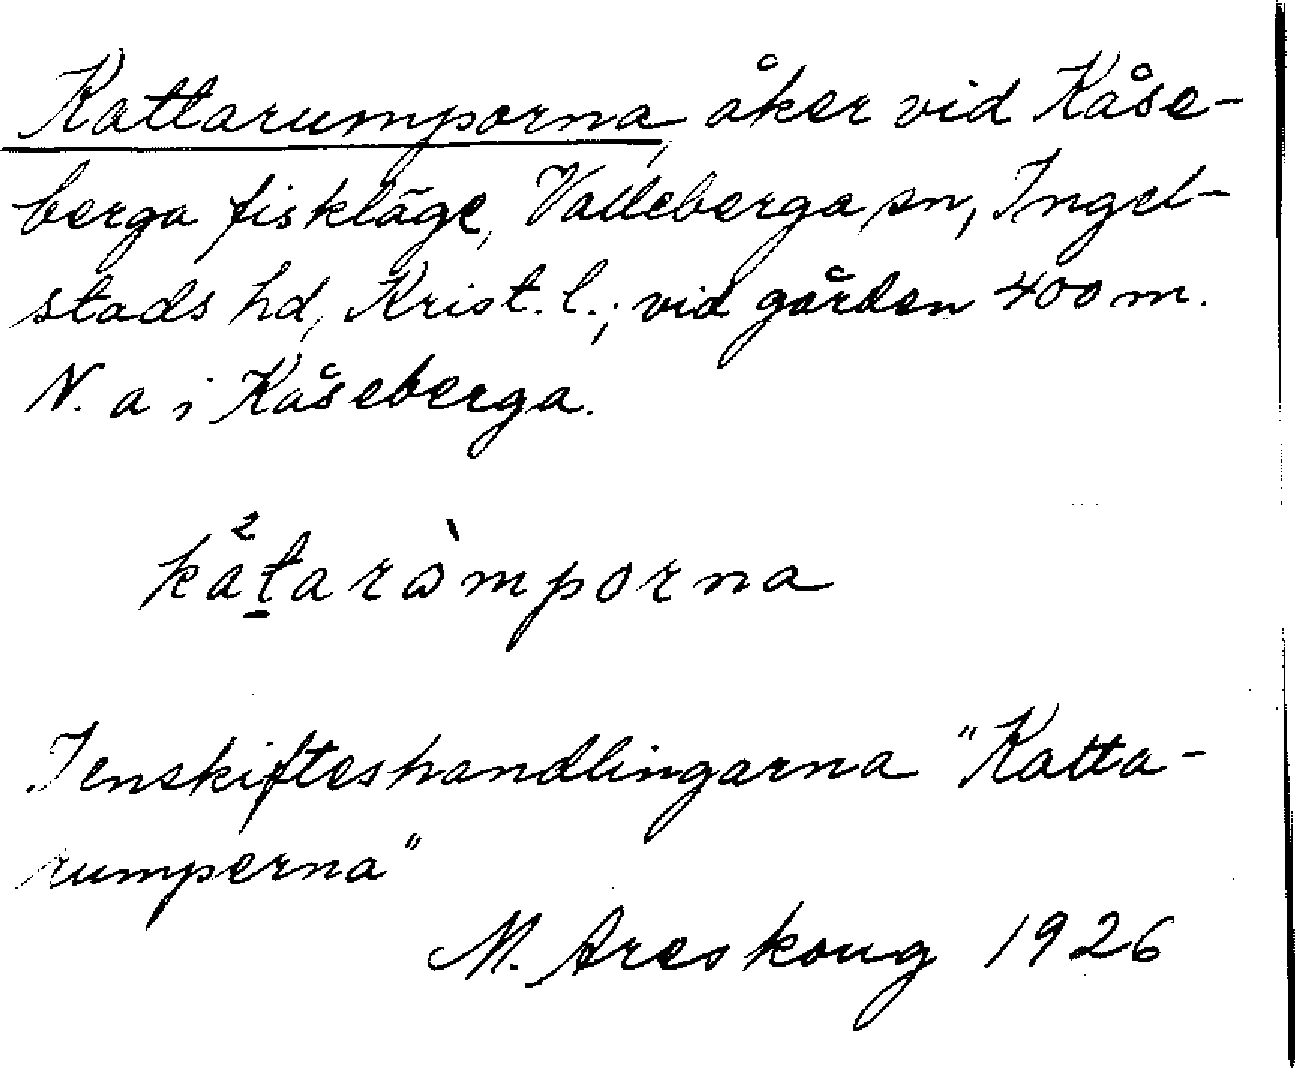 Kattarumporna, åker vid Kåse-
berga fiskläge, Valleberga sn, Ingel-
stads hd, Krist. l.; vid gården 400 m.
N. a i Kåseberga.
kåtaròmporna
I enskifteshandlingarna "Katta-
rumperna"
M. Areskoug 1926